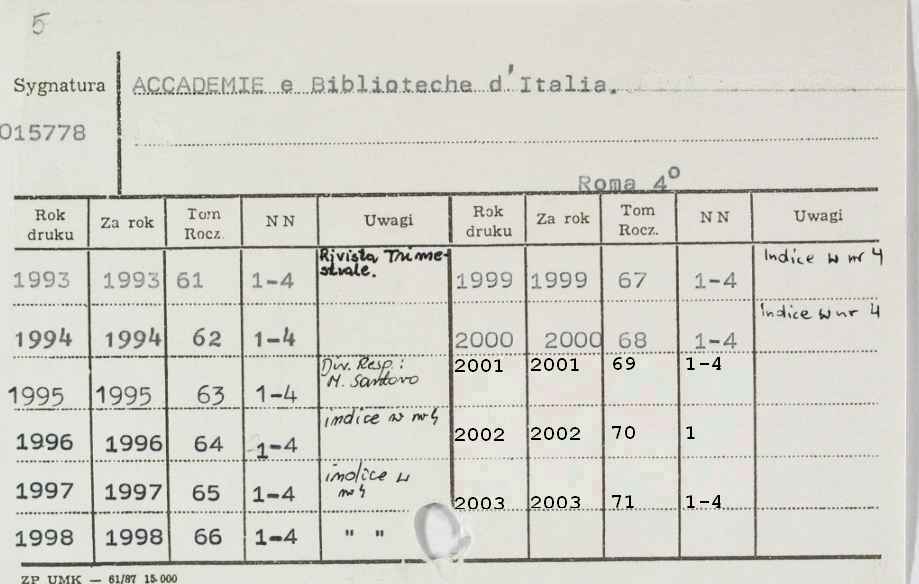 5
Sygnatura ACCADEMIE e Biblioteche d'Italia.
015778
Roma 4º
Rok druku Za rok Tom Rocz. NN Uwagi Rok druku Za rok Tom Rocz. NN Uwagi
1993 1993 61 1-4 Rivista Trimestrale. 1999 1999 67 1-4 Indice w nr 4
1994 1994 62 1-4 2000 2000 68 1-4 Indice w nr 4
1995 1995 63 1-4 Div. Resp.: M. Santoro 2001 2001 69 1-4
1996 1996 64 1-4 indice w nr 4 2002 2002 70 1
1997 1997 65 1-4 indice w nr 4 2003 2003 71 1-4
1998 1998 66 1-4 " "
ZP UMK — 61/87 15.000